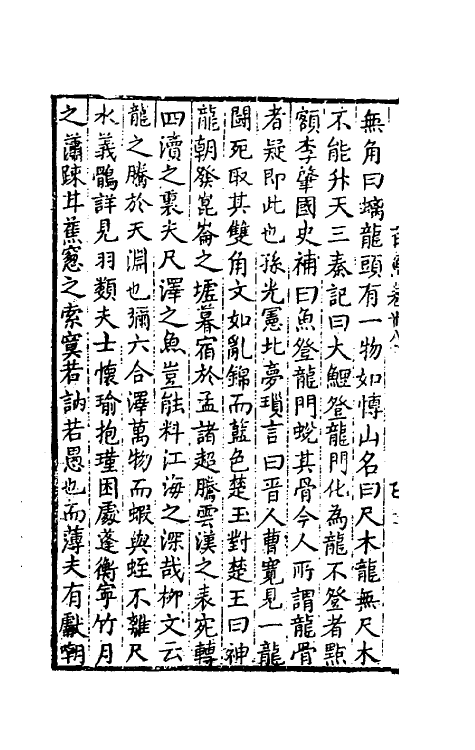 無角曰螭龍頭有一物如愽山名曰尺木龍無尺木
不能升天三秦記曰大鯉登龍門化為龍不登者點
額李肇國史補曰魚登龍門蛻其骨今人所謂龍骨
者疑即此也孫光憲北夢瑣言曰晉人曹寛見一龍
鬬死取其雙角文如亂錦而藍色楚玉對楚王曰神
龍朝發崑崙之墟暮宿於孟諸超騰雲漢之表宛轉
四瀆之裏夫尺澤之魚豈能料江海之深哉柳文云
龍之騰於天淵也彌六合澤萬物而蝦與蛭不離尺
水義鶻詳見羽類夫士懷瑜抱瑾困處蓬衡寧竹月
之蕭踈甘蕉窻之索寞若訥若愚也而薄夫有獻嘲